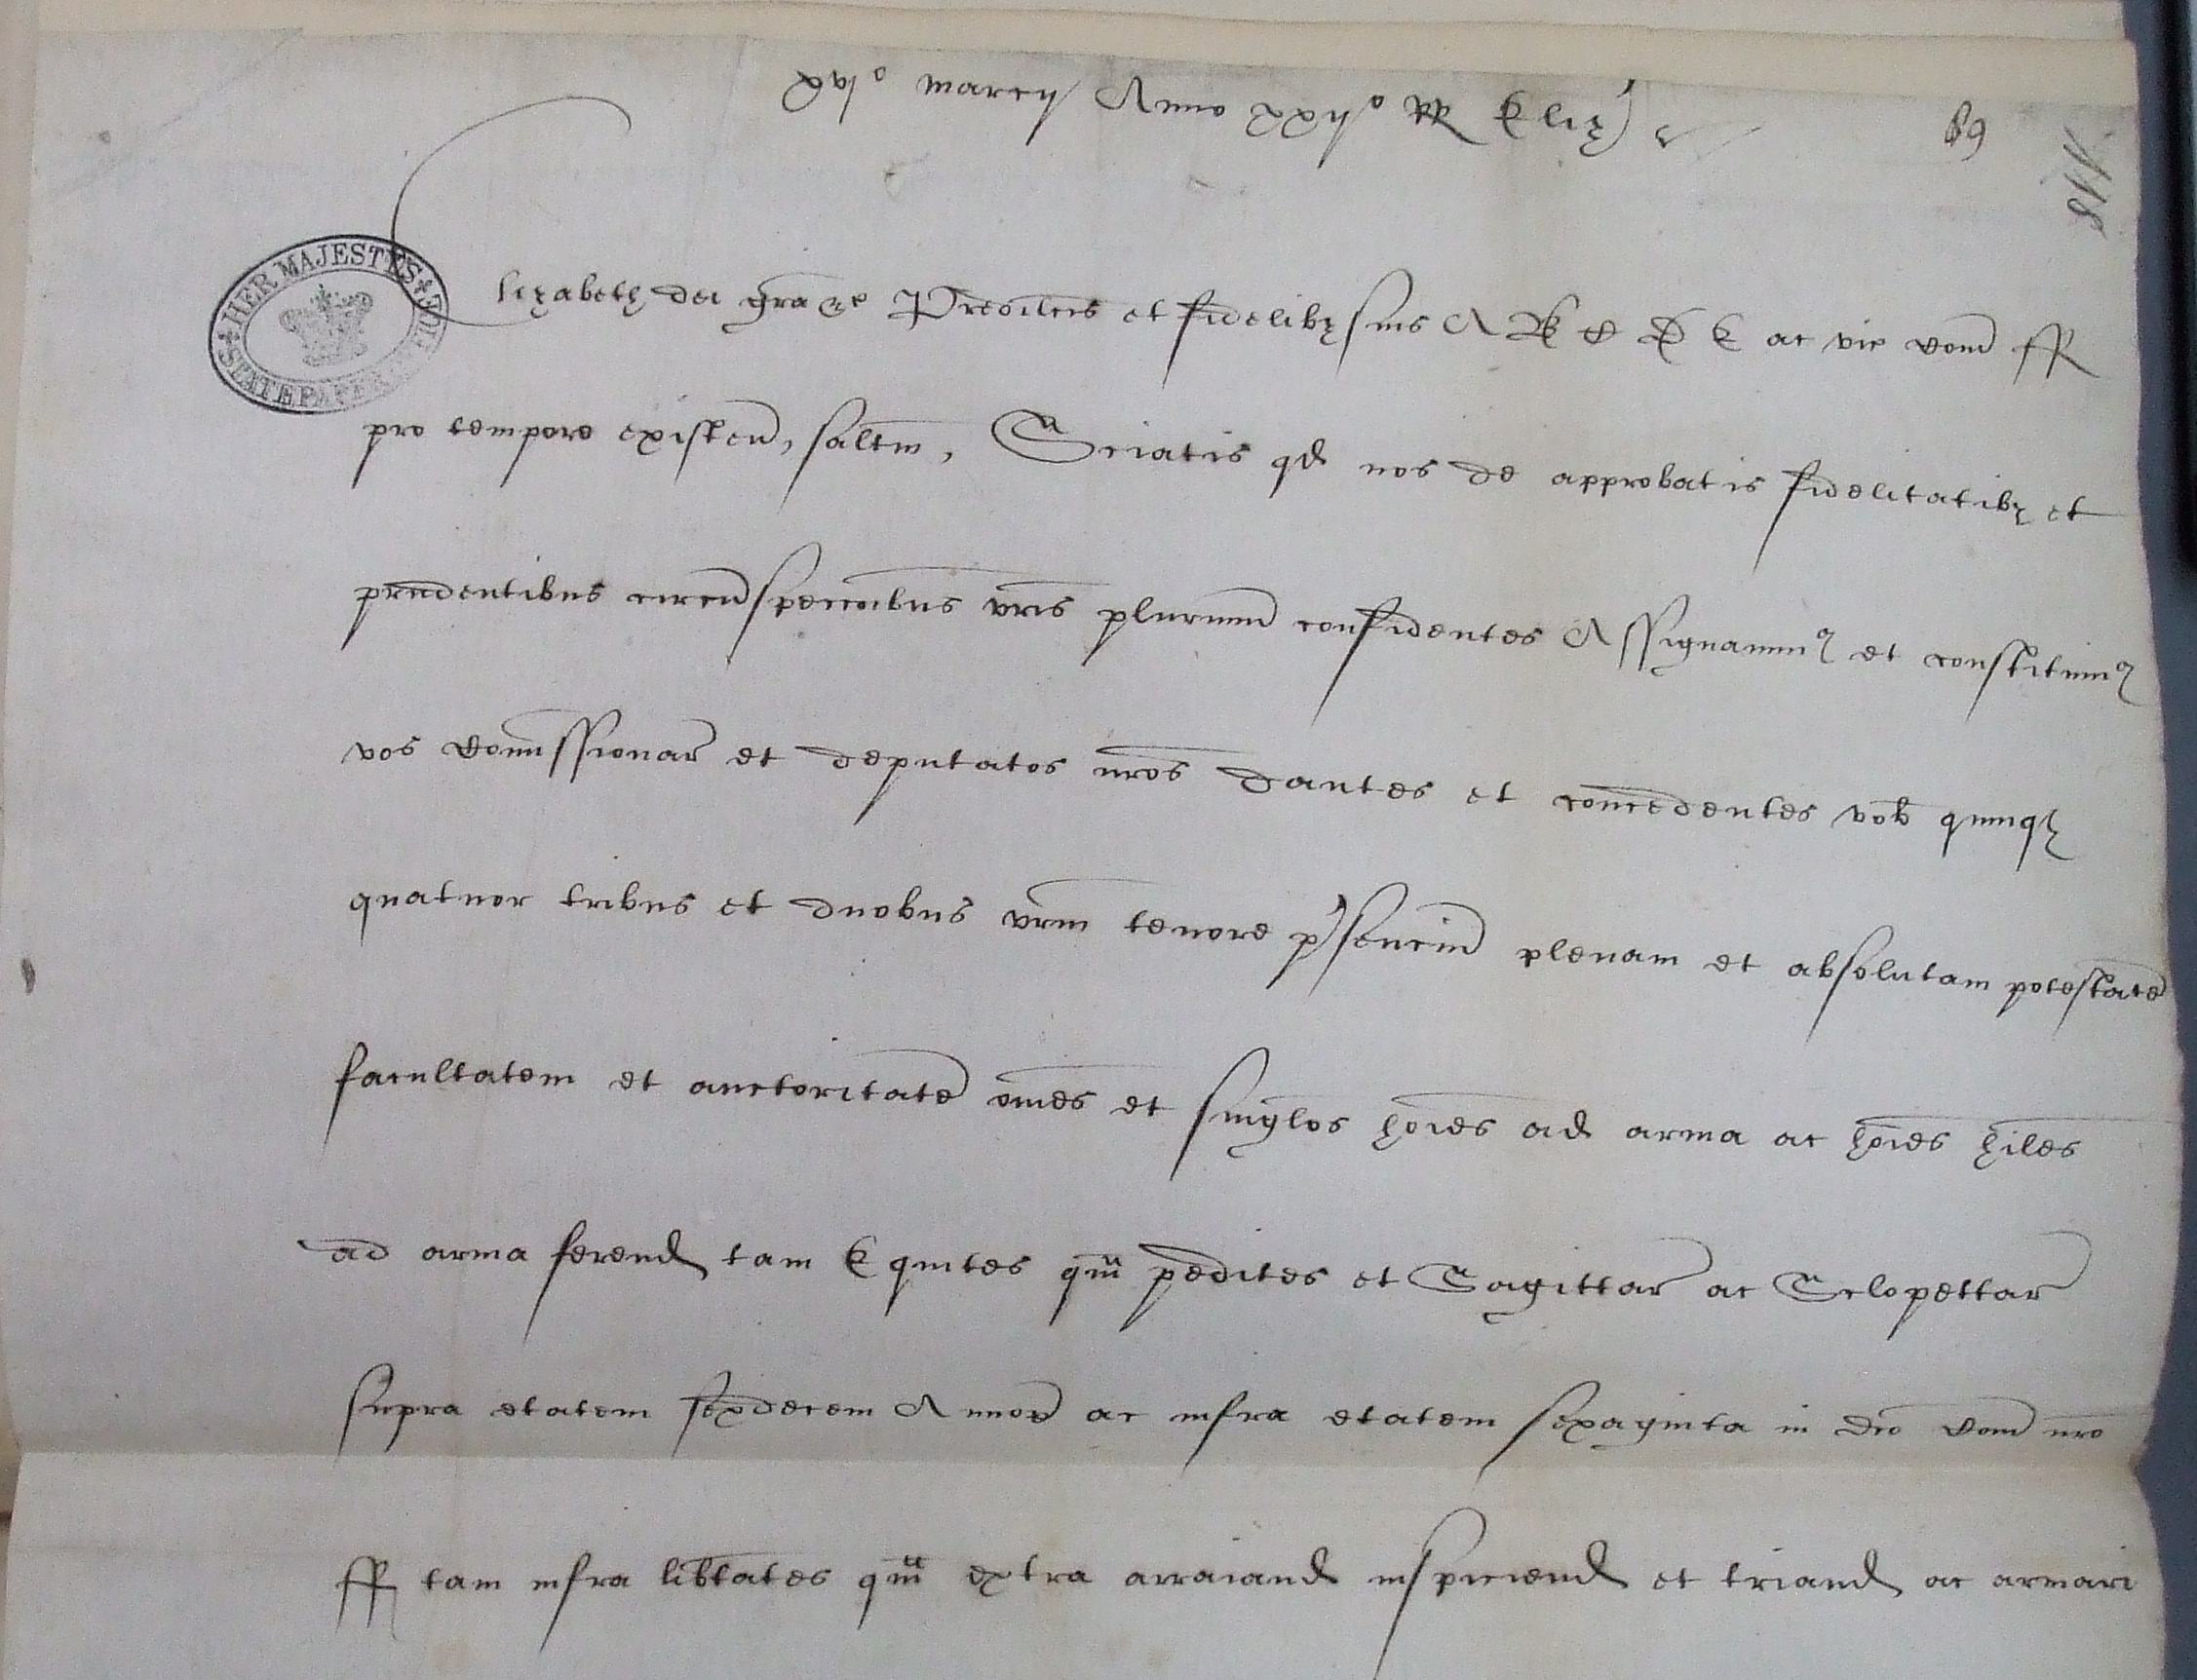 xvjº marcij Anno xxijº RR Eliz
89
118
HER MAJESTYS
STATE PAPER
lizabeth dei gra &c Predilcis et fidelibz suis A B C D E ac vic Com ff
pro tempore existen, saltm, Sciatis qd nos de approbatis fidelitatibz et
prudentibus circumspeccoibus vris plurimu confidentes Assignamus et constituimus
vos Comissionar et deputatos nros dantes et concedentes vob quinqz
quatuor tribus et duobus vrm tenore psenciu plenam et absolutam potestate
facultatem et auctoritate omes et singlos hoies ad arma ac hoies hiles
ad arma ferend tam Equites qm pedites et Sagittar ac Sclopettar
supra etatem sexdecem Annor ac infra etatem sexaginta in dco Com nro
ff tam infra libtates qm extra arraiand inspiciend et triand ac armari